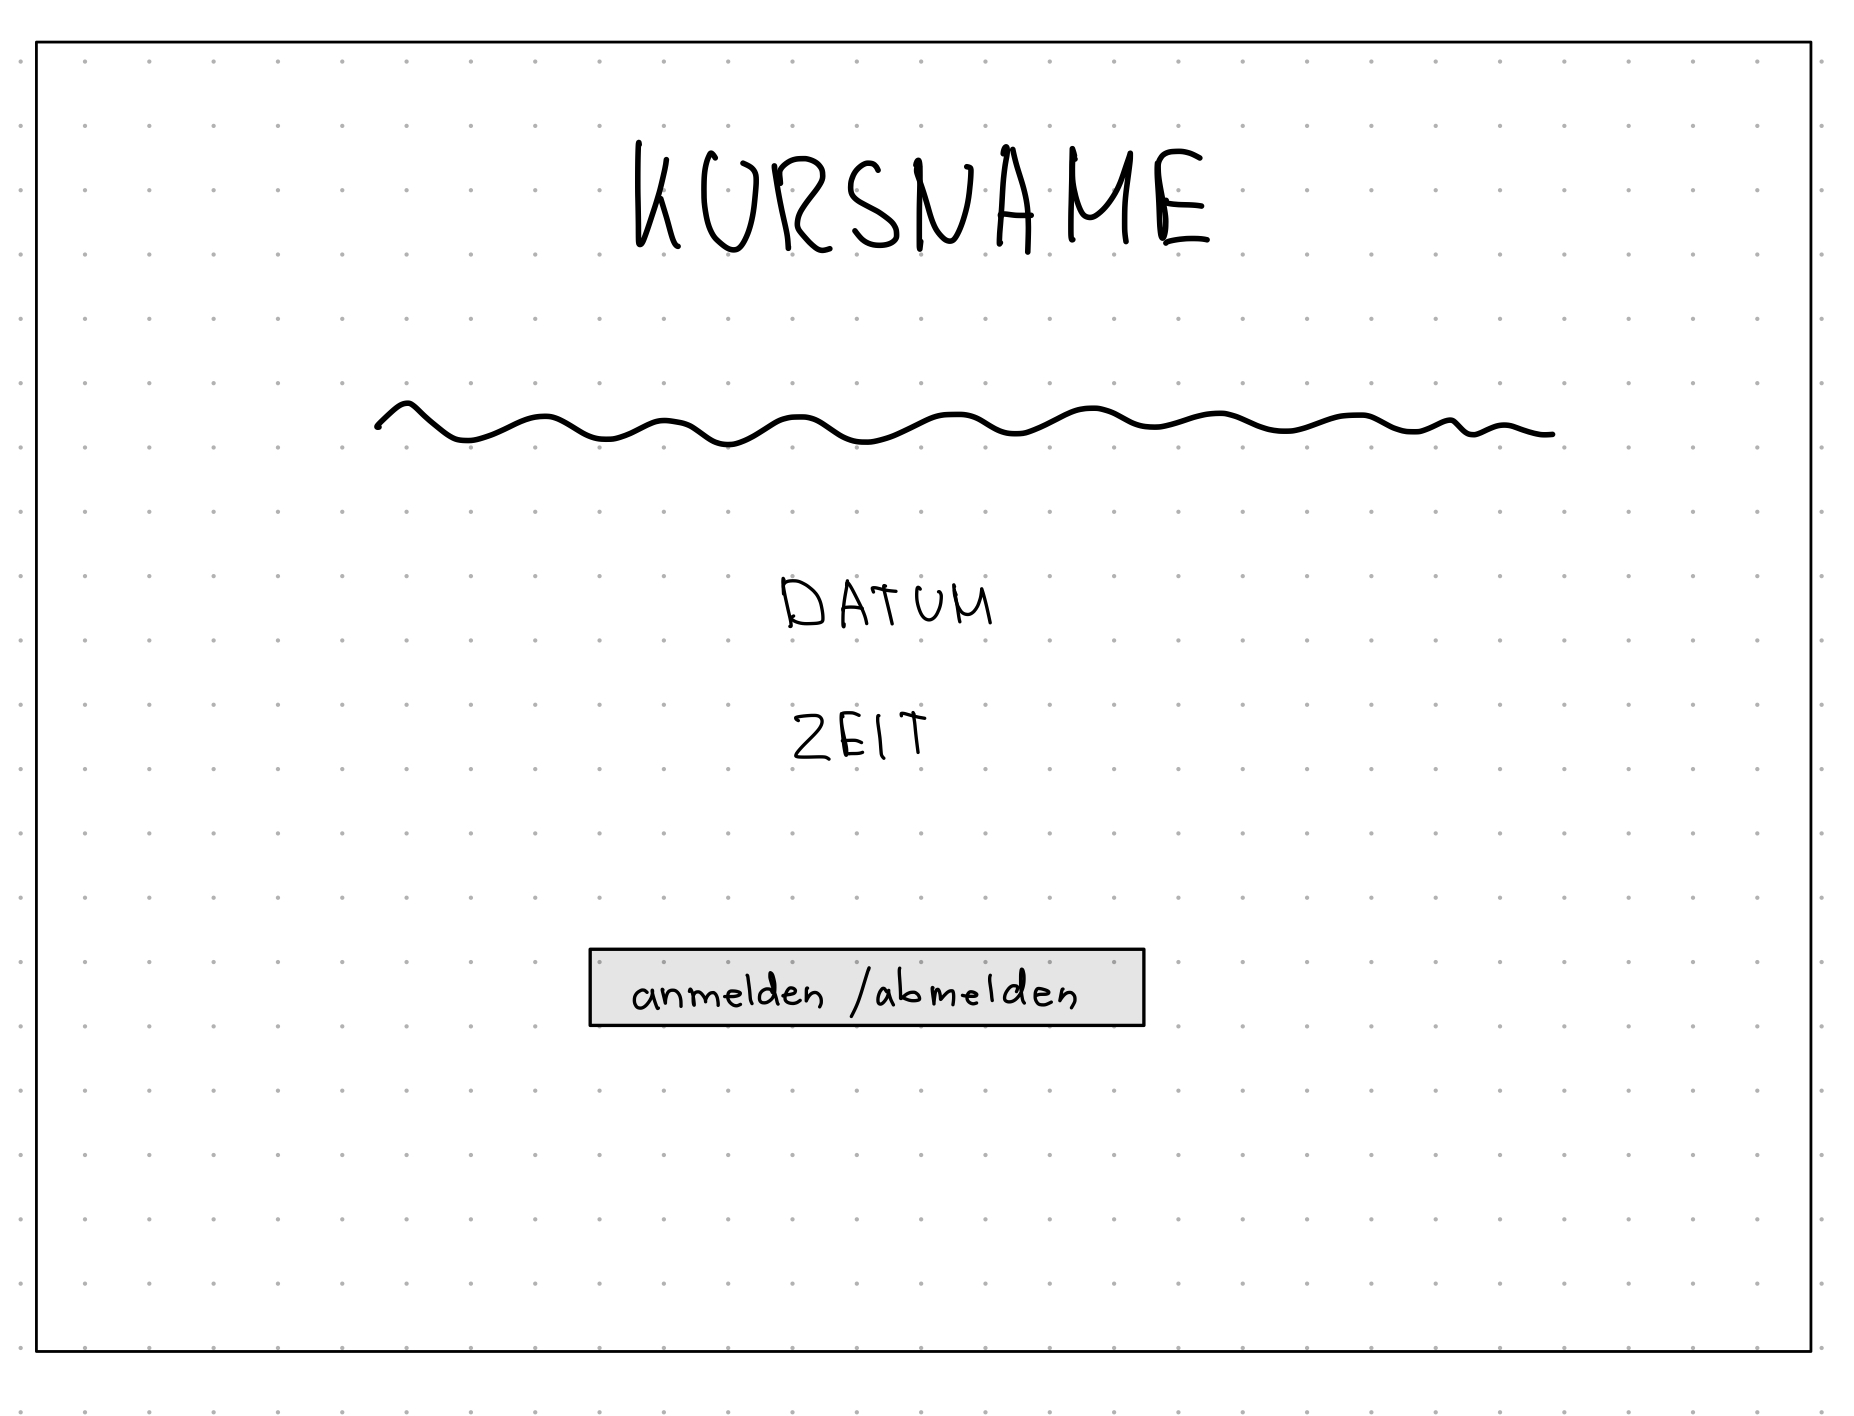 KURSNAME
DATUM
ZEIT
anmelden /abmelden